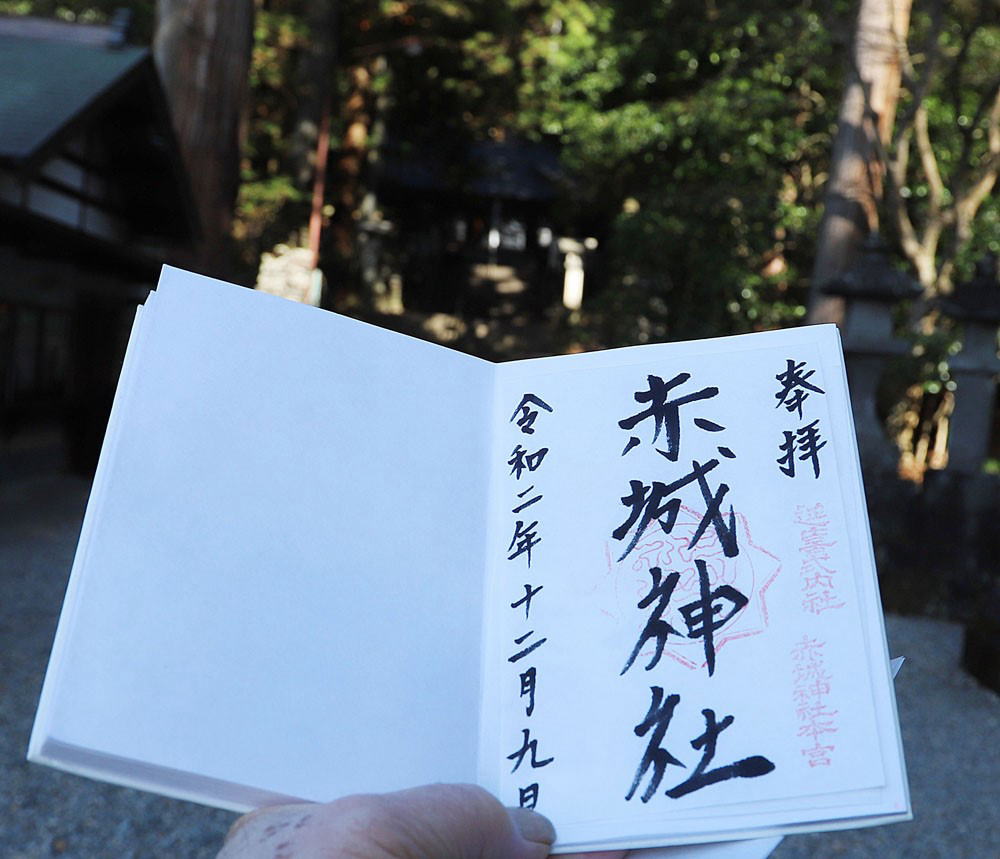 奉拝
延喜式内社 赤城神社本宮
赤城神社
令和二年十二月九日